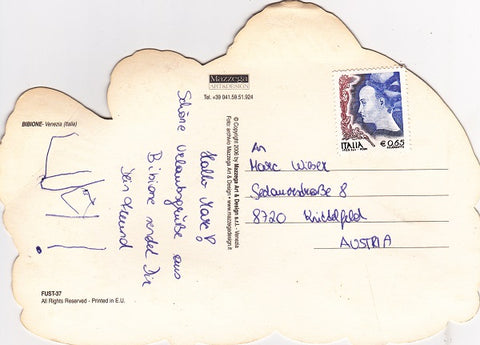 BIBIONE - Venezia (Italia)
Mazzega
ART&DESIGN
Tel. +39 041.59.51.924
Hallo Marc!
Schöne Urlaubsgrüße aus
Bibione sendet Dir
Dein Freund
© Copyright 2006 by Mazzega Art & Design s.r.l. Venezia
Foto: archivio Mazzega Art & Design • www.mazzegadesign.it
ITALIA
€ 0,65
An
Marc
8720 Knittelfeld
AUSTRIA
FUST-37
All Rights Reserved - Printed in E.U.